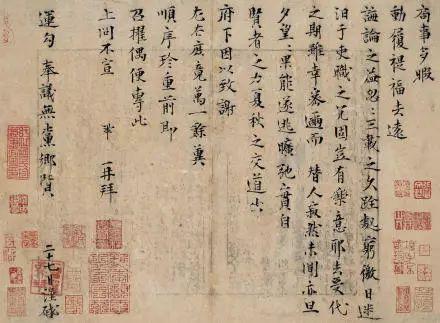 局事多暇
動履禔福去遠
誨論之益忽忽三載之久跧處窮徼日迷
汨于吏職之冗固豈有樂意耶去受代
之期雖幸密邇而替人寂然未聞亦旦
夕望望果能遂逃曠弛之責自
賢者之力夏秋之交道出
府下因以致謝
左右庶竟萬一餘冀
順序珍重前即
召擢偶便專此
上問不宣 鞏再拜
運勾奉議無黨鄉賢
二十七日謹啟